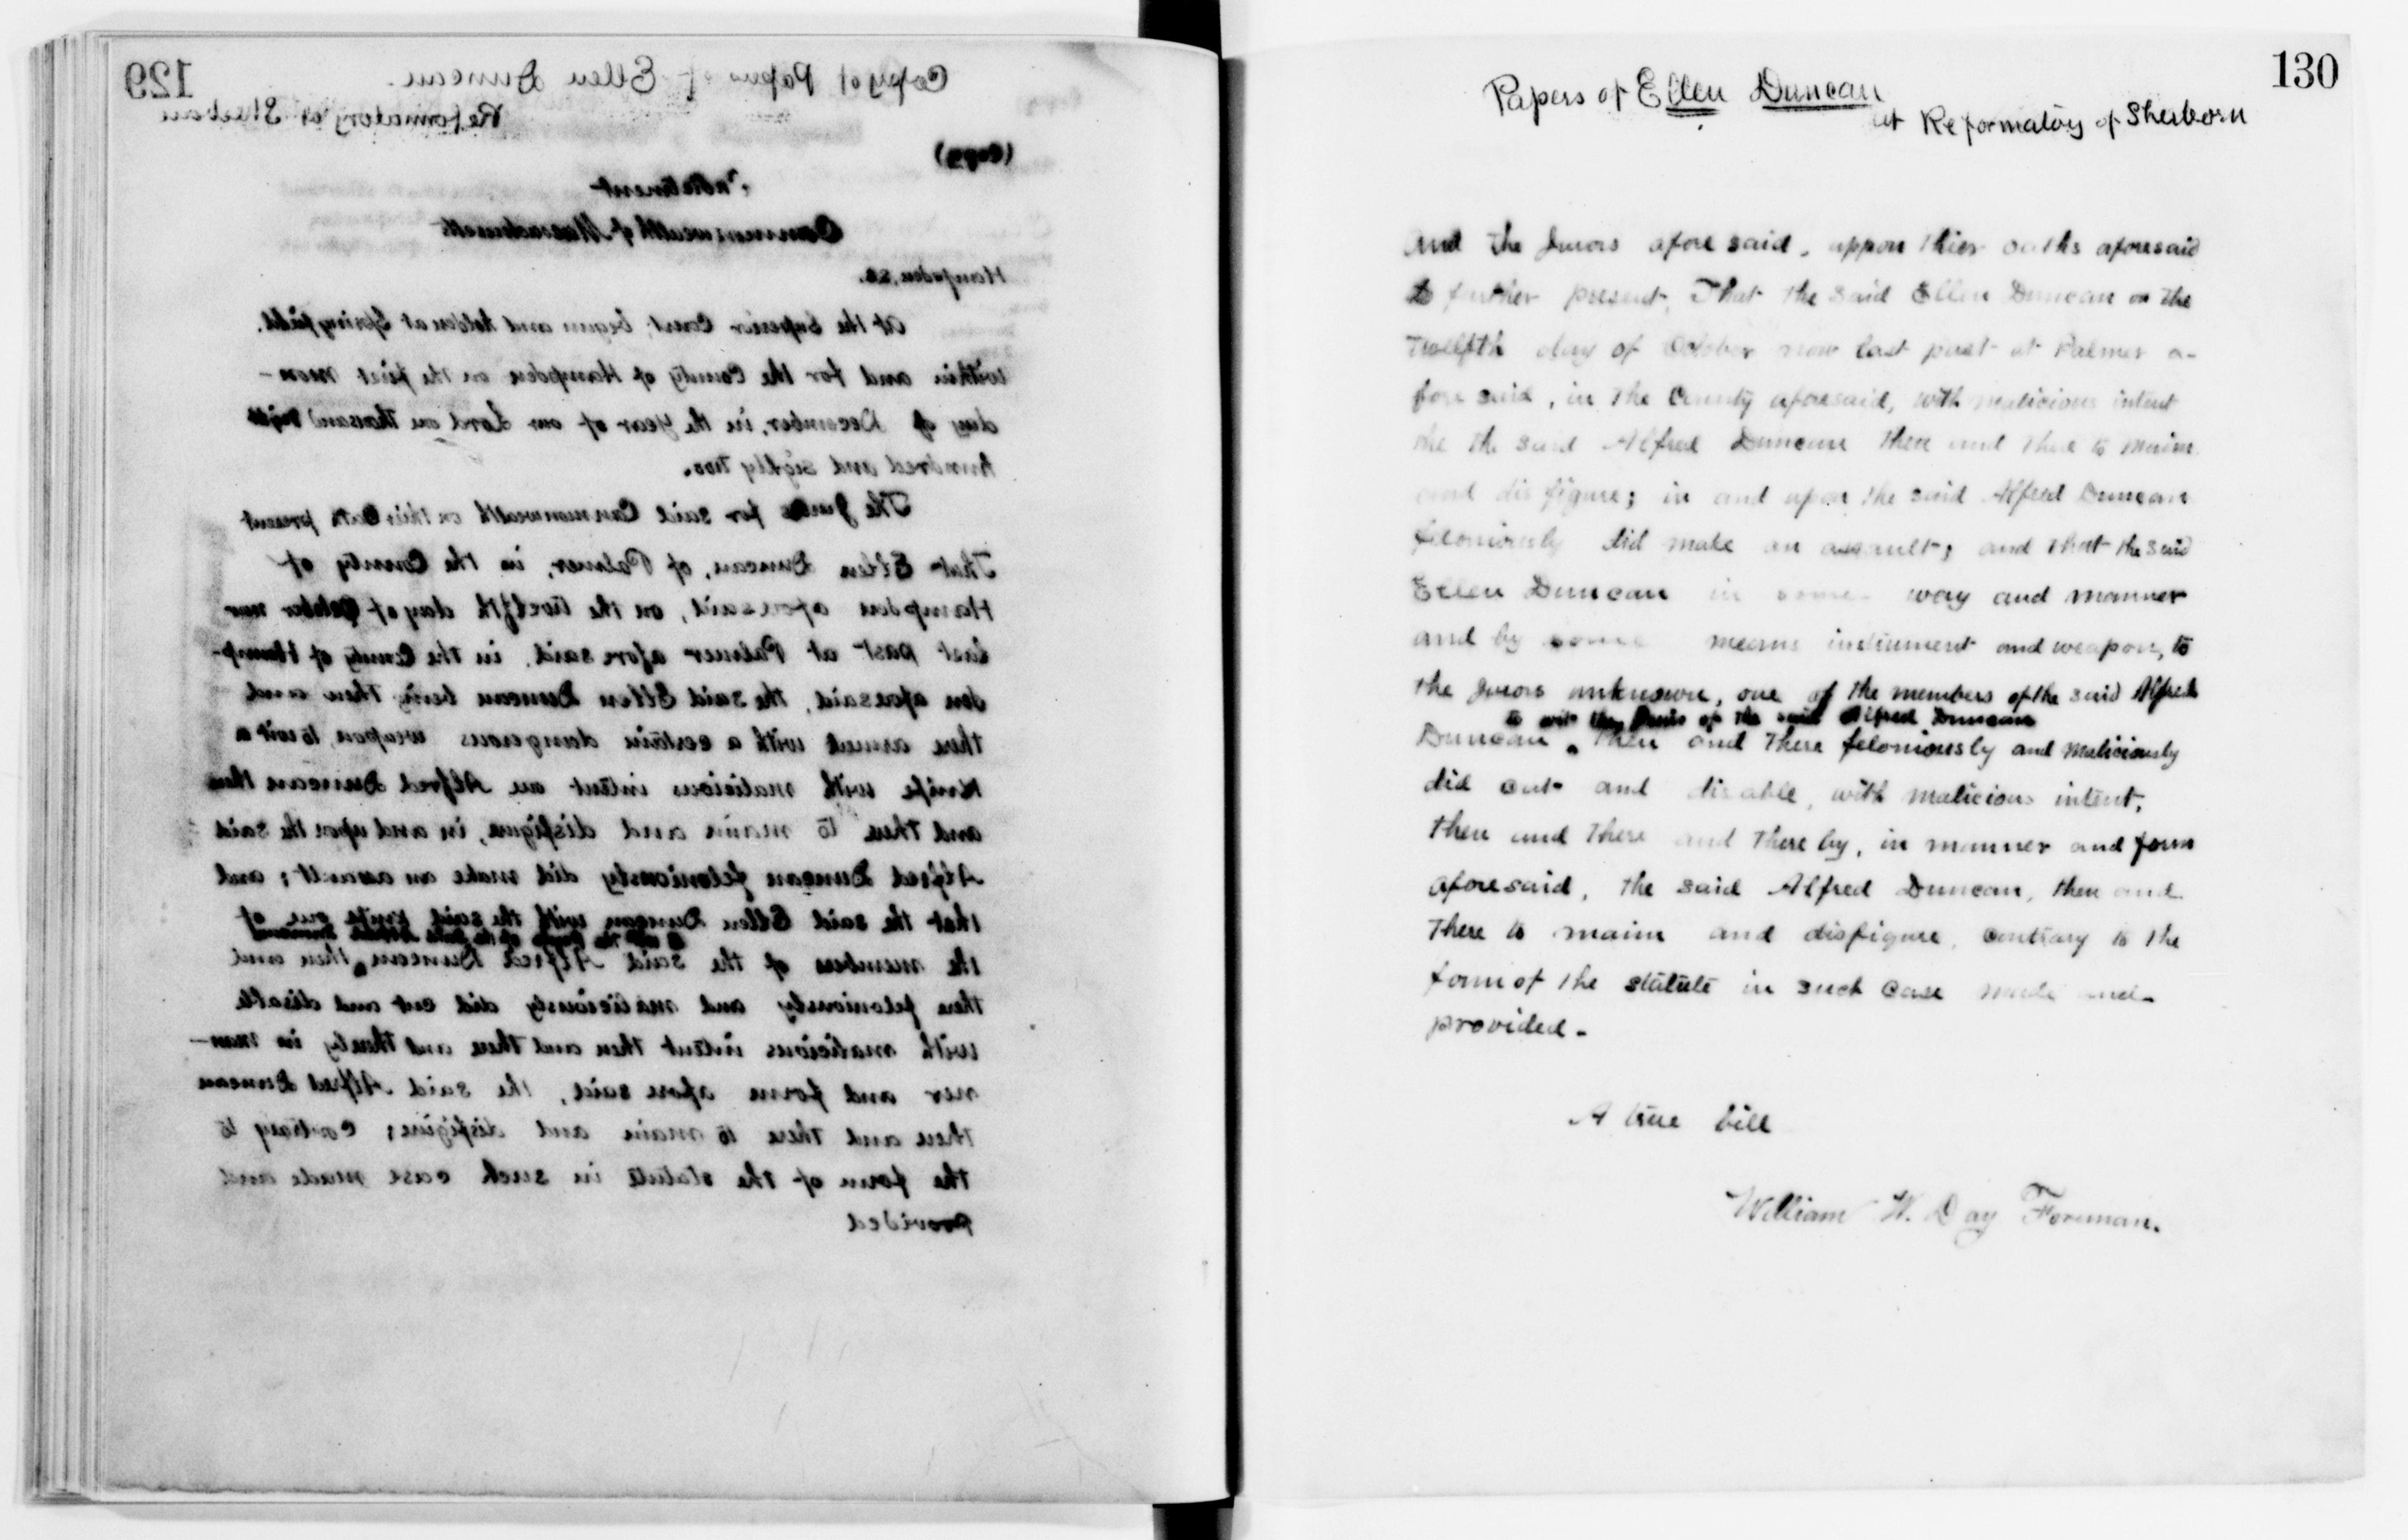 129
Copy of Papers of Ellen Duncan.
Reformatory at Sherborn
(Copy)
Indictment
Commonwealth of Massachusetts
Hampden, ss.
At the Superior Court, begun and holden at Springfield,
within and for the County of Hampden on the first mon-
day of December, in the year of our Lord one thousand eight
hundred and eighty two.
The Jurors for said Commonwealth on their Oath present
That Ellen Duncan, of Palmer, in the County of
Hampden aforesaid, on the twelfth day of October now
last past at Palmer afore said, in the County of Hamp-
den aforesaid, the said Ellen Duncan being then and
there armed with a certain dangerous weapon, to wit a
Knife with malicious intent one Alfred Duncan then
and there to maim and disfigure, in and upon the said
Alfred Duncan feloniously did make an assault; and
that the said Ellen Duncan with the said knife one of
to wit the Penis of the said Alfred Duncan
the members of the said Alfred Duncan then and
there feloniously and maliciously did cut and disable
with malicious intent then and there and thereby in man-
ner and form afore said, the said Alfred Duncan
then and there to maim and disfigure; contrary to
the form of the statute in such case made and
provided
130
Papers of Ellen Duncan
at Reformatory of Sherborn
And the Jurors afore said, uppon thier oaths aforesaid
do further present, That the said Ellen Duncan on the
Twelfth day of October now last past at Palmer a-
fore said, in the County aforesaid, with malicious intent
the said Alfred Duncan then and there to maim
and dis figure; in and upon the said Alfred Duncan
feloniously did make an assault; and that the said
Ellen Duncan in some way and manner
and by some means instrument and weapon, to
the Jurors unknown, one of the members of the said Alfred
to wit the Penis of the said Alfred Duncan
Duncan, then and there feloniously and maliciously
did cut and disable, with malicious intent,
then and there and there by, in manner and form
aforesaid, the said Alfred Duncan, then and
there to maim and disfigure, contrary to the
form of the statute in such case made and
provided-
A true bill
William W. Day Foreman.